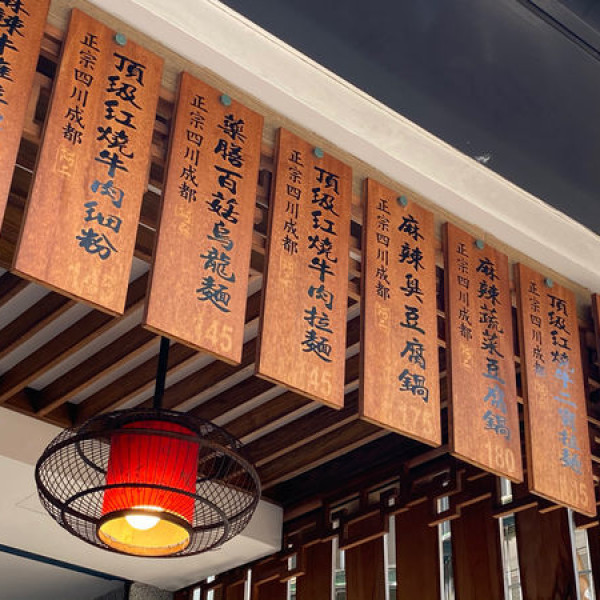 頂級紅燒牛肉細粉
正宗四川成都
145
藥膳百菇烏龍麵
正宗四川成都
145
頂級紅燒牛肉拉麵
正宗四川成都
145
麻辣臭豆腐鍋
正宗四川成都
175
麻辣蔬菜豆腐鍋
正宗四川成都
180
頂級紅燒牛三寶拉麵
正宗四川成都